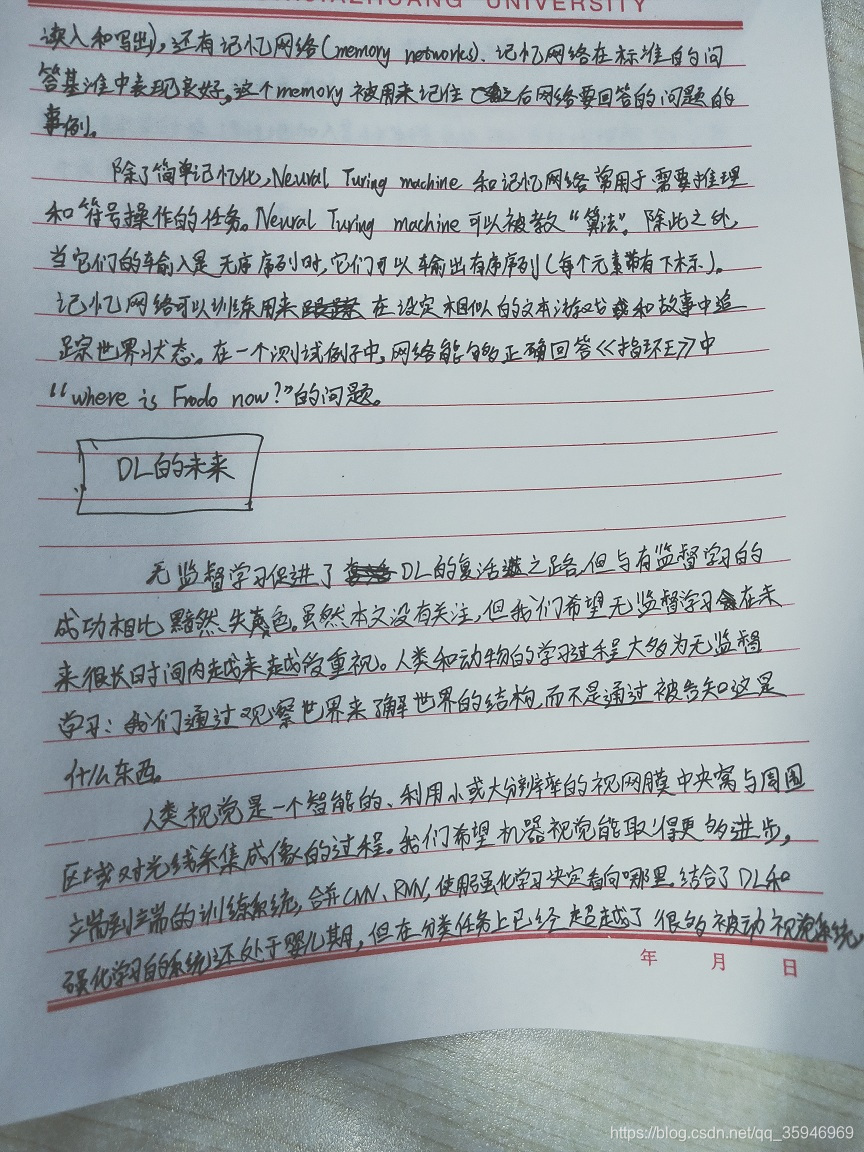 JIAZHUANG UNIVERSITY
读入和写出),还有记忆网络(memory networks).记忆网络在标准的问
答基准中表现良好,这个memory被用来记住之后网络要回答的问题的
事例。
除了简单记忆化,Neural Turing machine 和记忆网络常用于需要推理
和符号操作的任务。Neural Turing machine可以被教“算法”。除此之外,
当它们的输入是无序序列时,它们可以输出有序序列(每个元素带有下标)。
记忆网络可以训练用来在设定相似的文本游戏和故事中追
踪世界状态。在一个测试例子中,网络能够正确回答《指环王》中
“where is Frodo now?”的问题。
DL的未来
无监督学习促进了DL的复活之路,但与有监督学习的
成功相比黯然失色。虽然本文没有关注,但我们希望无监督学习在未
来很长时间内越来越受重视。人类和动物的学习过程大多为无监督
学习:我们通过观察世界来了解世界的结构,而不是通过被告知这是
什么东西。
人类视觉是一个智能的、利用小或大分辨率的视网膜中央窝与周围
区域对光线采集成像的过程。我们希望机器视觉能取得更多进步,
端到端的训练系统,合并CNN、RNN,使用强化学习决定看向哪里.结合了DL和
强化学习的系统还处于婴儿期,但在分类任务上已经超越了很多被动视觉系统,
年 月 日
https://blog.csdn.net/qq_35946969